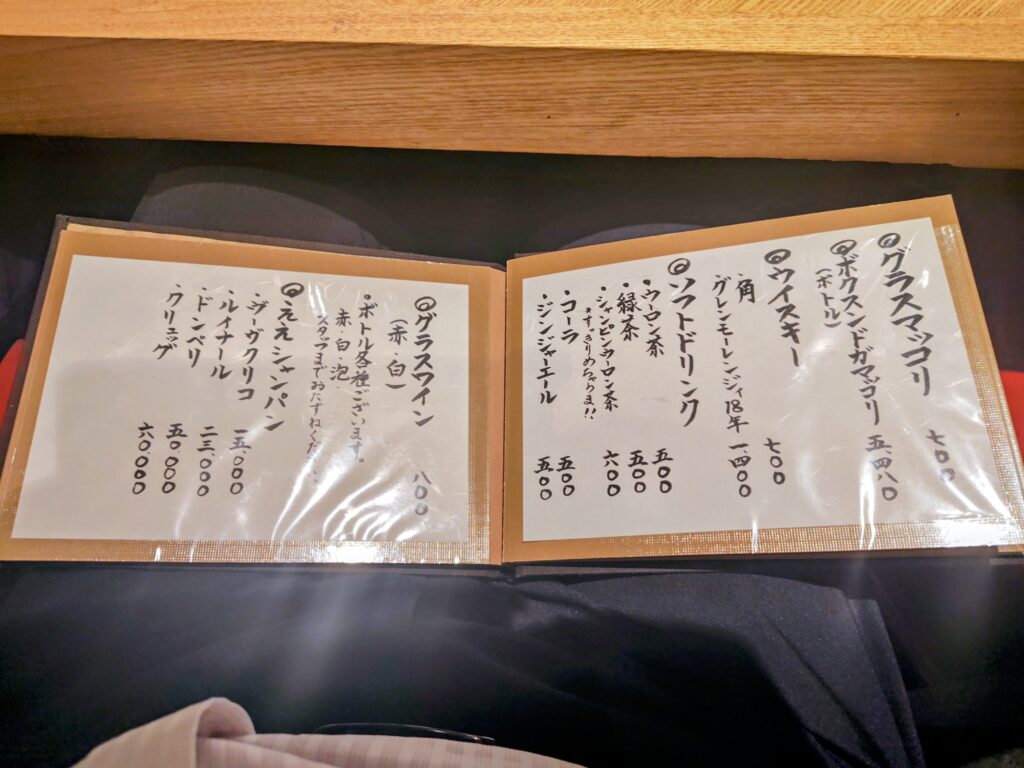 ◎グラスマッコリ 七〇〇
◎ボクスンドガマッコリ 五、四八〇
(ボトル)
◎ウイスキー
・角 七〇〇
グレンモーレンジィ18年 一、四〇〇
◎ソフトドリンク
・ウーロン茶 五〇〇
・緑茶 五〇〇
・シャンピンウーロン茶 六〇〇
*すっきりめちゃうま!!
・コーラ 五〇〇
・ジンジャエール 五〇〇
◎グラスワイン 八〇〇
(赤・白)
・ボトル各種ございます。
赤・白・泡
スタッフまでおたずねくだ
◎ええシャンパン
・ヴーヴクリコ 一五、〇〇〇
・ルイナール 二三、〇〇〇
・ドンペリ 五〇、〇〇〇
・クリュッグ 六〇、〇〇〇